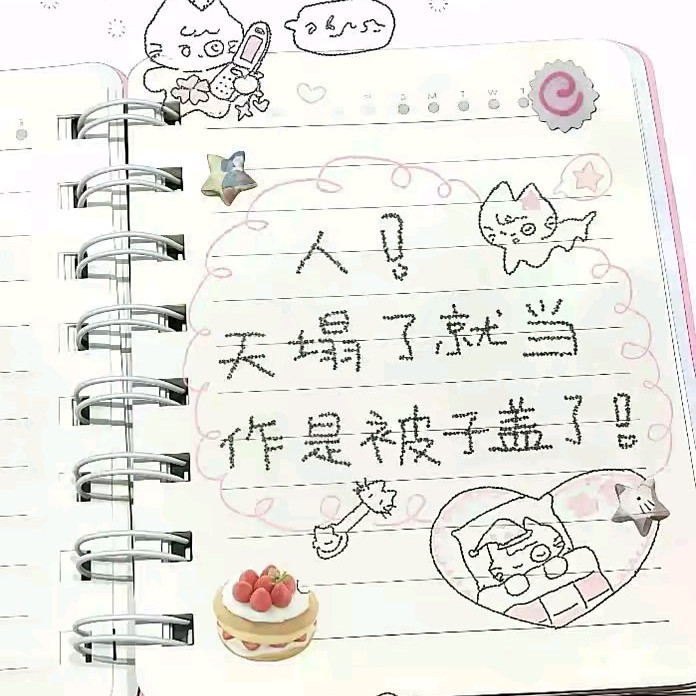 S M T W T
人!
天塌了就当
作是被子盖了!